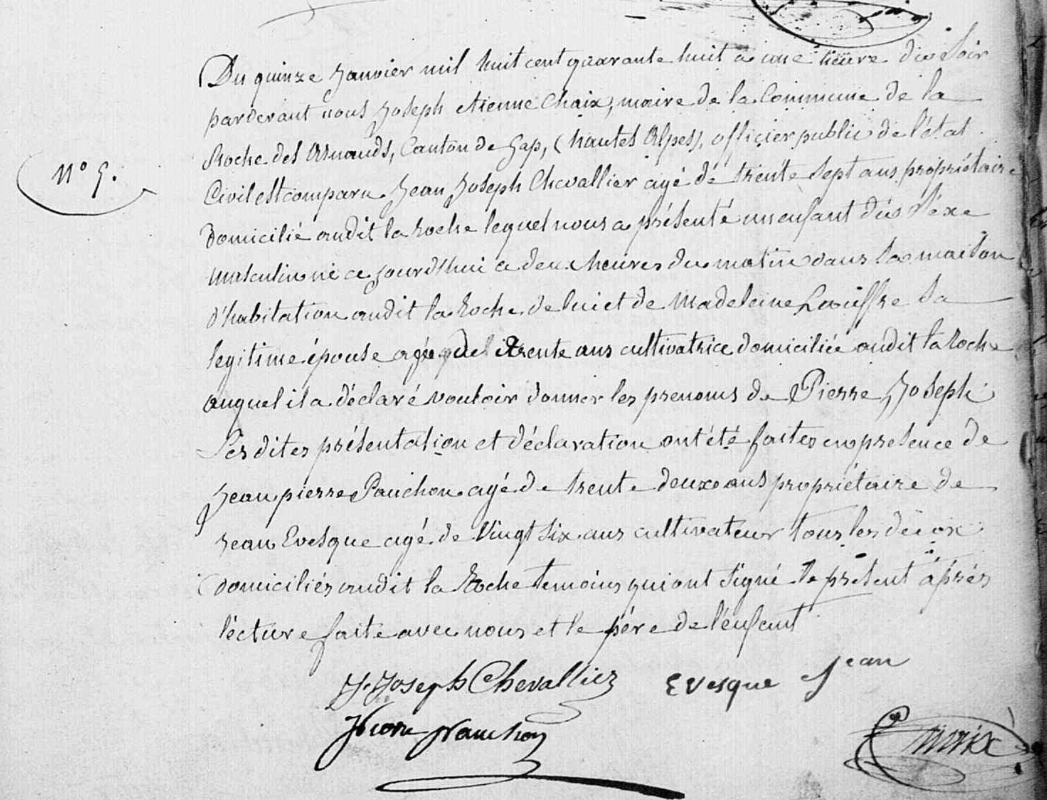 Du quinze Janvier mil huit cent quarante huit à une heure du Soir
pardevant nous Joseph etienne Chaix, maire de la Commune de la
Roche des Arnauds, Canton de Gap, (hautes Alpes), officier public de l'état
N° 5.
Civil est comparu Jean Joseph Chevallier agé de trente sept ans propriétaire
domicilié audit la Roche lequel nous a présenté un enfant du Séxe
masculin né ce jourd'hui a deux heures du matin dans la maison
d'habitation audit la Roche de lui et de Madeleine Sa
legitime épouse agée de trente ans cultivatrice domiciliée audit la Roche
auquel il a déclaré vouloir donner les prenoms de Pierre Joseph
Les dites présentation et déclaration ont été faites en presence de
Jean pierre Pauchon agé de trente deux ans propriétaire de
Jean Evesque agé de Vingt Six ans cultivateur tous les deux
domiciliés audit la Roche temoins qui ont Signé le présent après
lécture faite avec nous et le père de l'enfant
J. Joseph Chevallier Evesque Jean